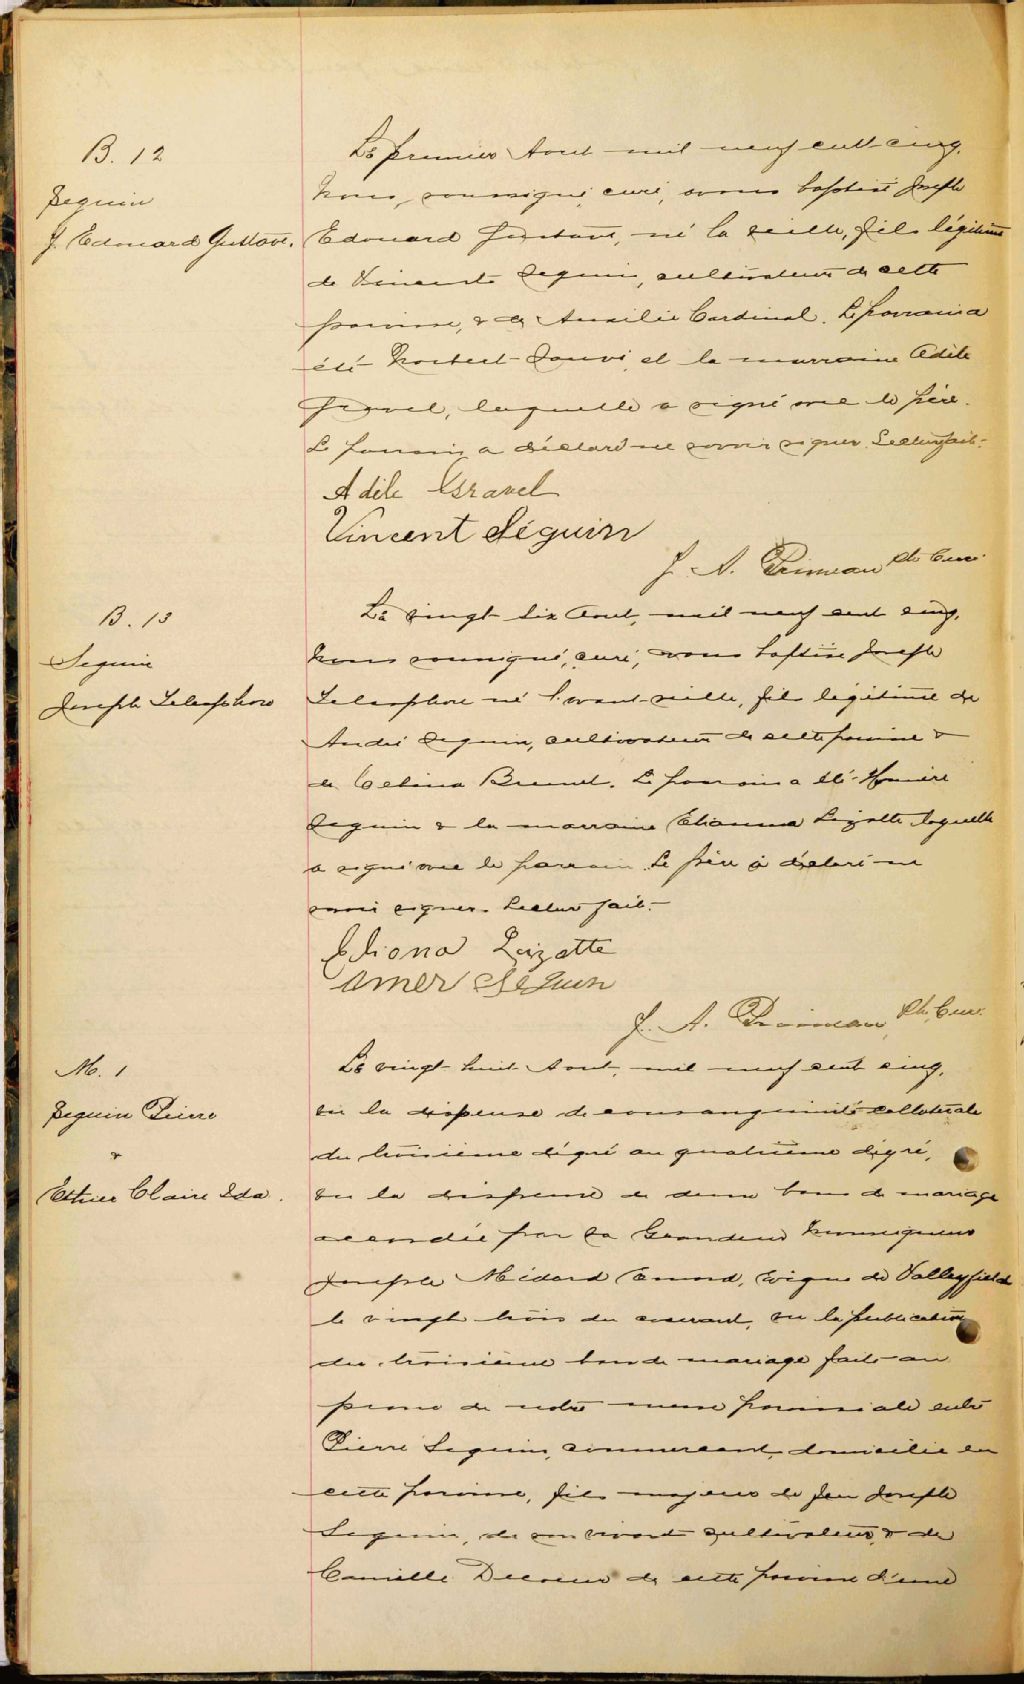 B. 12
Seguin
J. Edouard Gustave.
Le premier Aout mil neuf cent cinq.
Nous, soussigné, curé, avons baptisé Joseph
Edouard Gustave, né la veille, fils légitime
de Vincent Seguin, cultivateur de cette
paroisse, & de Aurélie Cardinal. Le parrain a
été Norbert Sauvé, et la marraine Adèle
Gravel, laquelle a signé avec le père.
Le parrain a déclaré ne savoir signer. Lecture faite.
Adèle Gravel
Vincent Séguin
J. A. Primeau Ptr Curé
B. 13
Seguin
Joseph Telesphore
Le vingt six Aout, mil neuf cent cinq,
Nous soussigné, curé, avons baptisé Joseph
Telesphore né l'avant-veille, fils légitime de
André Seguin, cultivateur de cette paroisse &
de Celina Brunet. Le parrain a été
Seguin & la marraine Elianna Lizotte laquelle
a signé avec le parrain. Le père a déclaré ne
savoir signer. Lecture faite.
Eliona Lizotte
Omer Séguin
J. A. Primeau, Ptr, Curé.
M. 1
Seguin Pierre
&
Ethier Claire Ida.
Le vingt huit Aout, mil neuf cent cinq,
vu la dispense de consanguinité collatérale
du troisième dégré au quatrième dégré,
vu la dispense de deux bans de mariage
accordée par sa Grandeur Monseigneur
Joseph Médard Emard, Evêque de Valleyfield
le vingt trois du courant, vu la publication
du troisième ban de mariage faite au
prone de notre messe paroissiale entre
Pierre Seguin, commercant, domicilié en
cette paroisse, fils majeur de feu Joseph
Seguin, de son vivant cultivateur, & de
Camille Decoeur de cette paroisse d'une